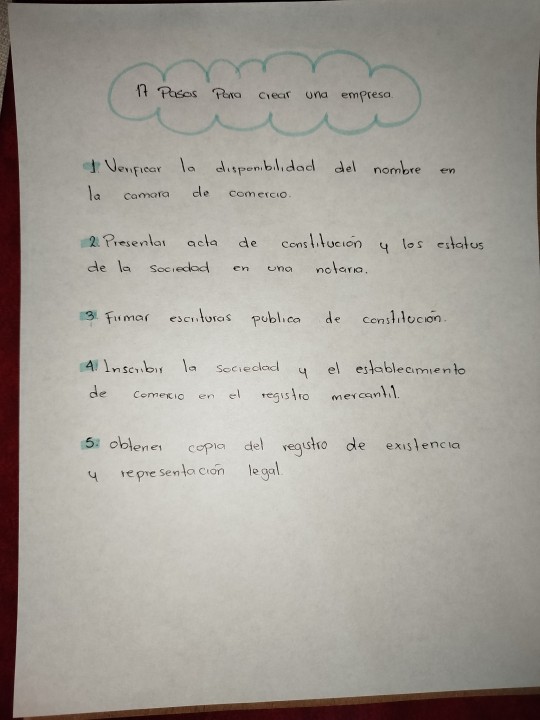 17 Pasos Para crear una empresa
1 Verificar la disponibilidad del nombre en
la camara de comercio.
2 Presentar acta de constitución y los estatus
de la sociedad en una notaria.
3 Firmar escrituras publica de constitución.
4 Inscribir la sociedad y el establecimiento
de comercio en el registro mercantil.
5. obtener copia del registro de existencia
y representación legal.